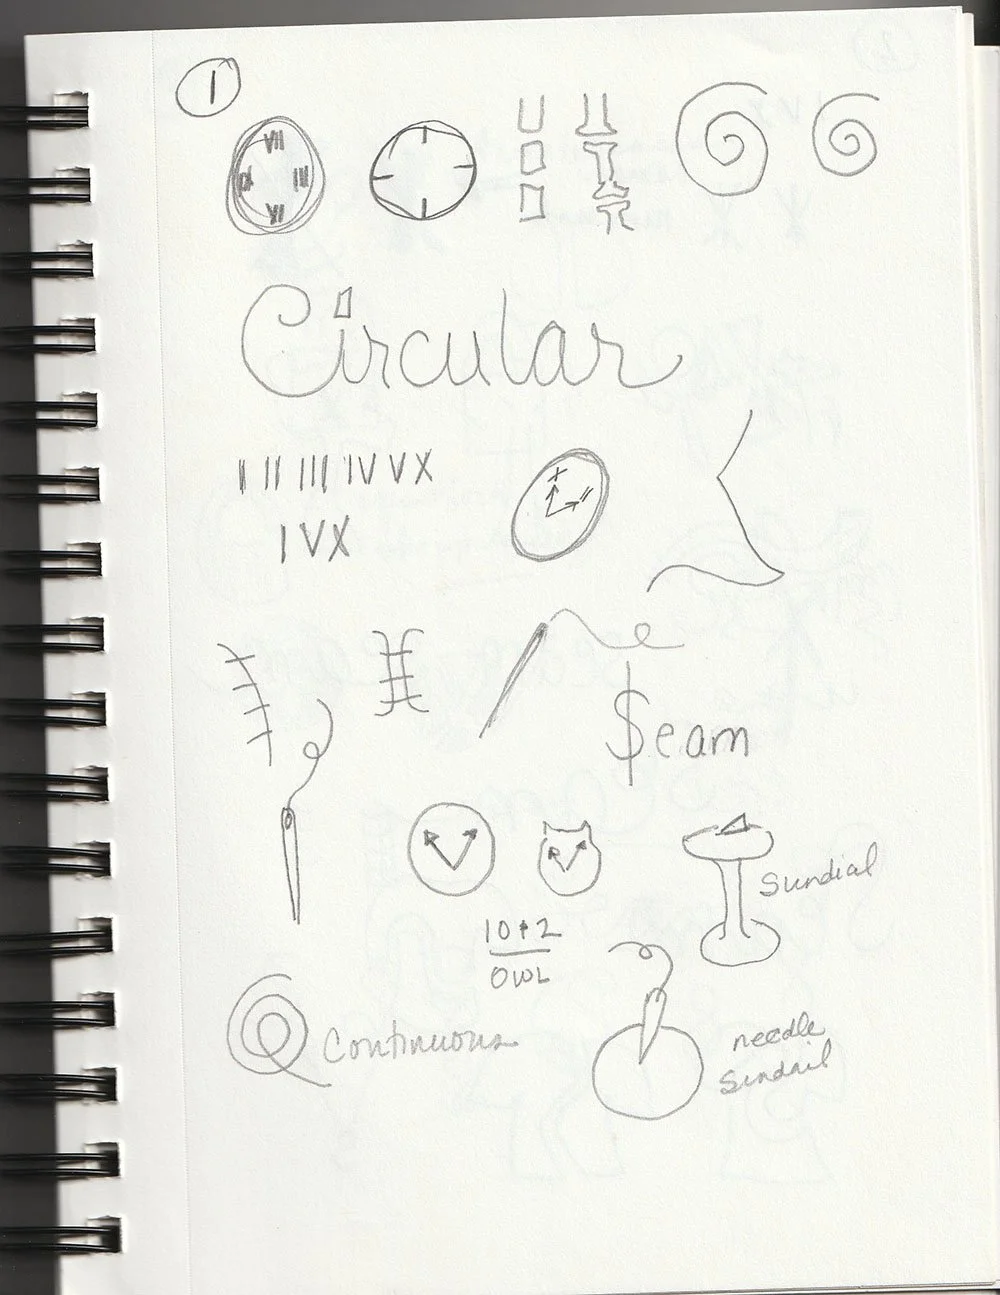 1
VII
IX III
VI
Circular
I II III IV V X
I V X
X
II
$eam
Sundial
10+2
OWL
Continuous
needle
Sundail